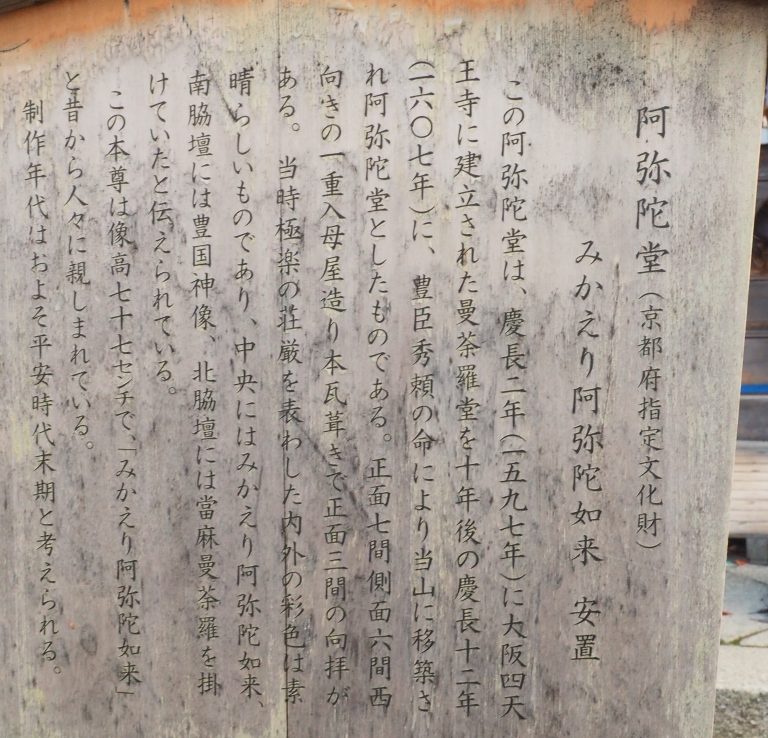 阿弥陀堂（京都府指定文化財）
みかえり阿弥陀如来　安置
この阿弥陀堂は、慶長二年（一五九七年）に大阪四天
王寺に建立された曼荼羅堂を十年後の慶長十二年
（一六〇七年）に、豊臣秀頼の命により当山に移築さ
れ阿弥陀堂としたものである。正面七間側面六間西
向きの一重入母屋造り本瓦葺きで正面三間の向拝が
ある。当時極楽の荘厳を表わした内外の彩色は素
晴らしいものであり、中央にはみかえり阿弥陀如来、
南脇壇には豊国神像、北脇壇には當麻曼荼羅を掛
けていたと伝えられている。
この本尊は像高七十七センチで、「みかえり阿弥陀如来」
と昔から人々に親しまれている。
制作年代はおよそ平安時代末期と考えられる。